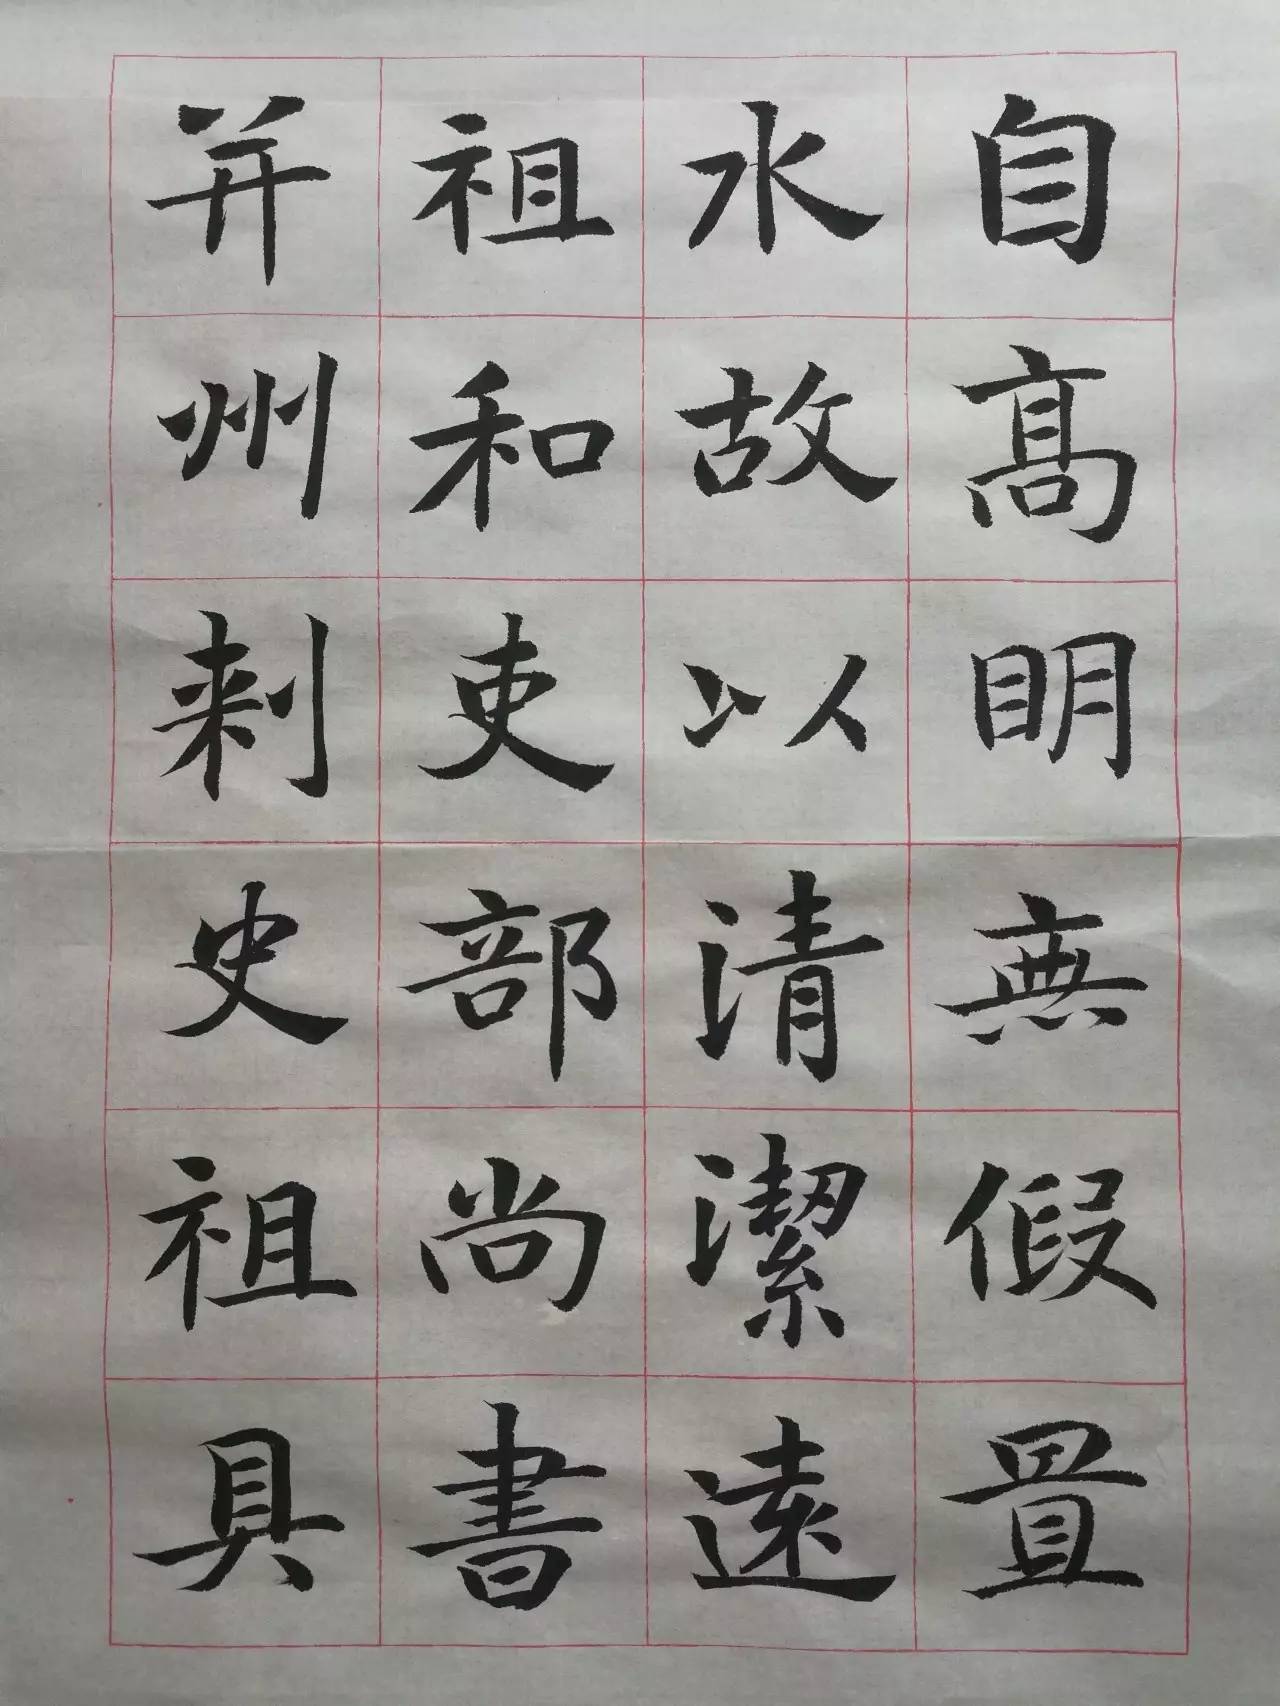 自高明無假置
水故以清潔遠
祖和吏部尚書
并州刺史祖具